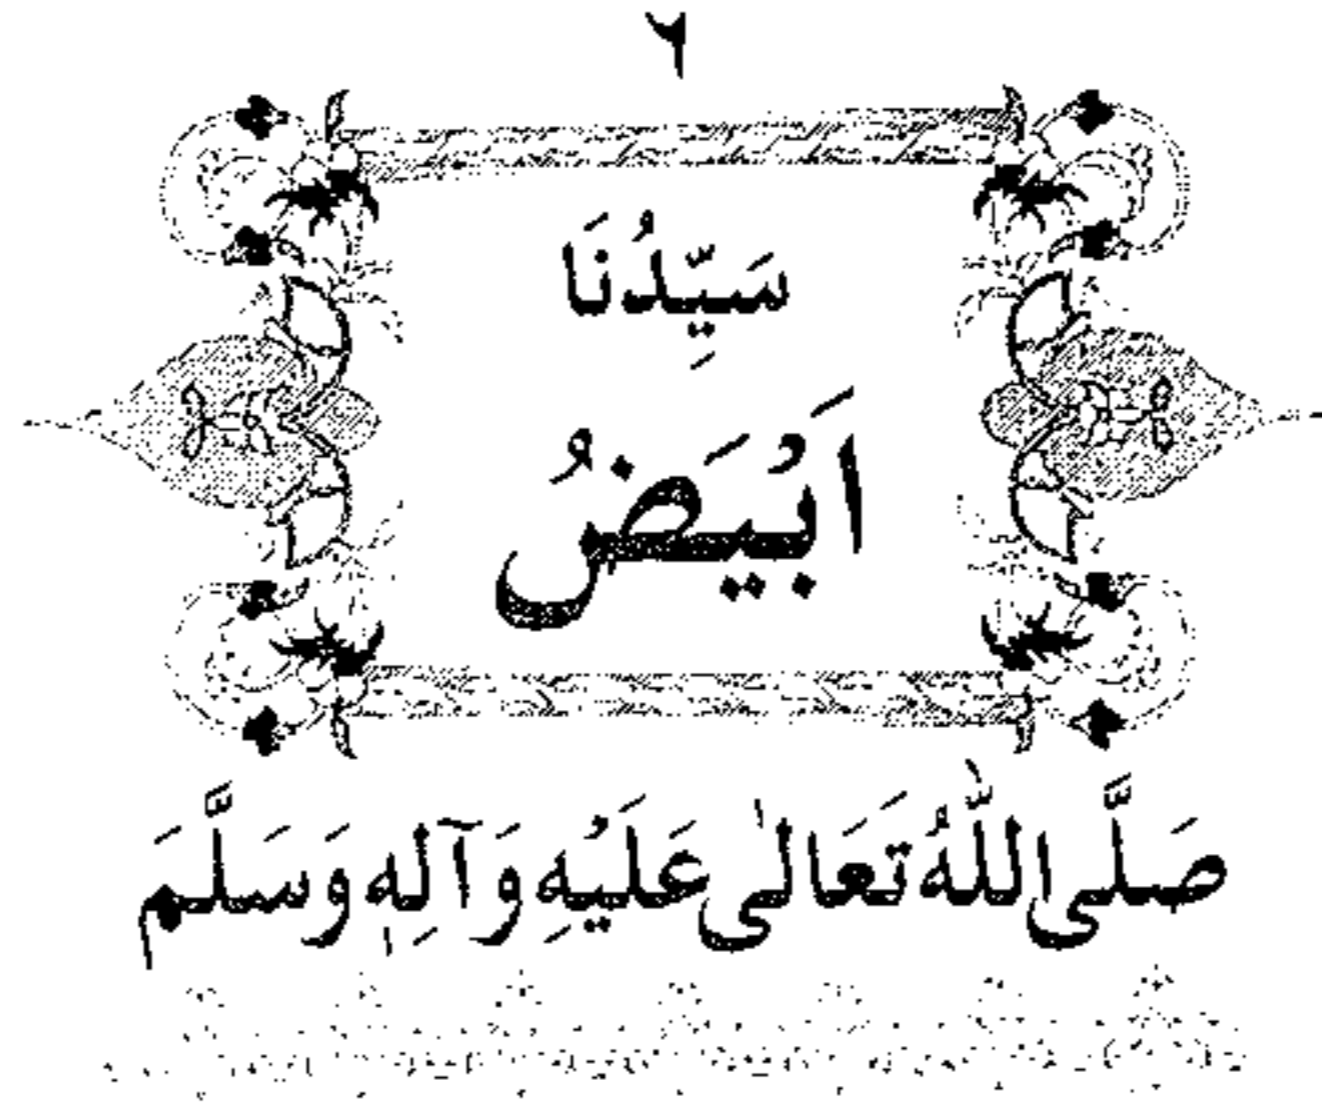 ٢
سَيِّدُنَا
اَبْيَضُ
صَلَّى اللّٰهُ تَعَالٰى عَلَيْهِ وَآلِهٖ وَسَلَّمَ